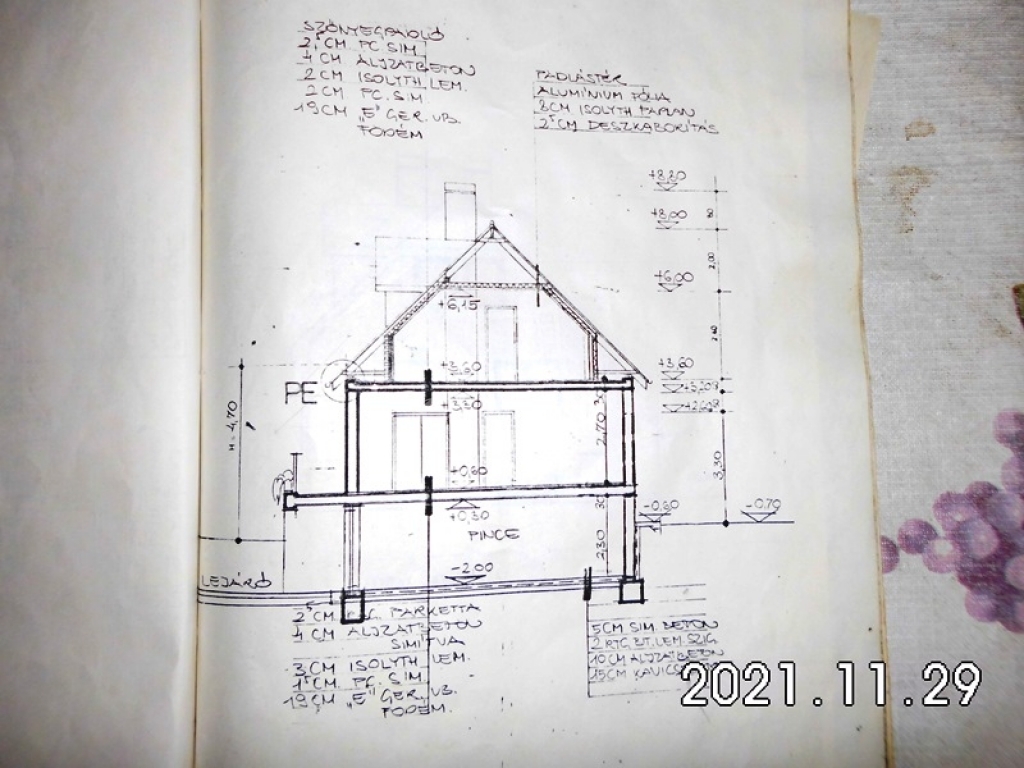 SZŐNYEGPADLÓ
2⁵CM PC. SIM.
4CM ALJZATBETON
2CM ISOLYTH LEM.
2CM PC. SIM.
19CM „E" GER. VB.
FÖDÉM
PADLÁSTÉR
ALUMÍNIUM FÓLIA
8CM ISOLYTH PAPLAN
2⁵CM DESZKABORÍTÁS
+8,80
+8,00
+6,00
+6,15
+3,60
+3,60
PE
+3,30
H=4,70
2,70
3,30
+0,60
+0,30
-0,80
-0,70
PINCE
230
-2.00
LEJÁRÓ
2⁵CM PARKETTA
4CM ALJZATBETON
SIMÍTVA
3CM ISOLYTH. LEM.
1⁵CM PC. SIM.
19CM „E" GER. VB.
FÖDÉM.
5CM SIM. BETON
2 RTG. BT. LEM. SZIG.
10CM ALJZATBETON
15CM
2021.11.29